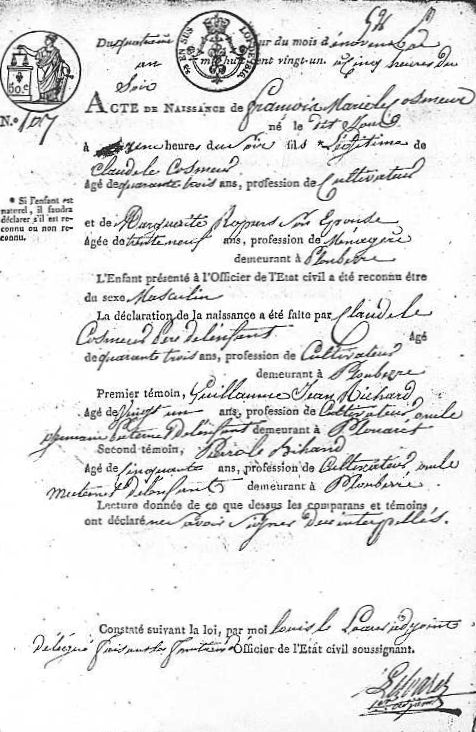 Du quatrième jour du mois de novembre
an mil huit cent vingt-un à cinq heures du
Soir
ACTE DE NAISSANCE de françois Marie le Cosmeur
N.º 107
né le dit Jour
à heures du soir fils Légitime de
Claude le Cosmeur
Agé de quarante trois ans, profession de Cultivateur
* Si l'enfant est
naturel, il faudra
déclarer s'il est re-
connu ou non re-
connu.
et de Marguerite Ropers son Epouse
Agée de trente neuf ans, profession de Ménagère
demeurant à Plouberre
L'Enfant présenté à l'Officier de l'Etat civil a été reconnu être
du sexe Masculin
La déclaration de la naissance a été faite par Claude le
Cosmeur père de l'enfant Agé
de quarante trois ans, profession de Cultivateur
demeurant à Plouberre
Premier témoin, Guillaume Jean Richard
Agé de vingt un ans, profession de Cultivateur oncle
germain paterne de l'enfant demeurant à Plouaret
Second témoin, Pierre le Bihand
Agé de cinquante ans, profession de Cultivateur, oncle
de l'enfant demeurant à Plouberre
Lecture donnée de ce que dessus les comparans et témoins
ont déclaré ne savoir signer de ce interpellés.
Constaté suivant la loi, par moi louis le adjoint
délégué faisant les fonctions d'Officier de l'Etat civil soussignant.